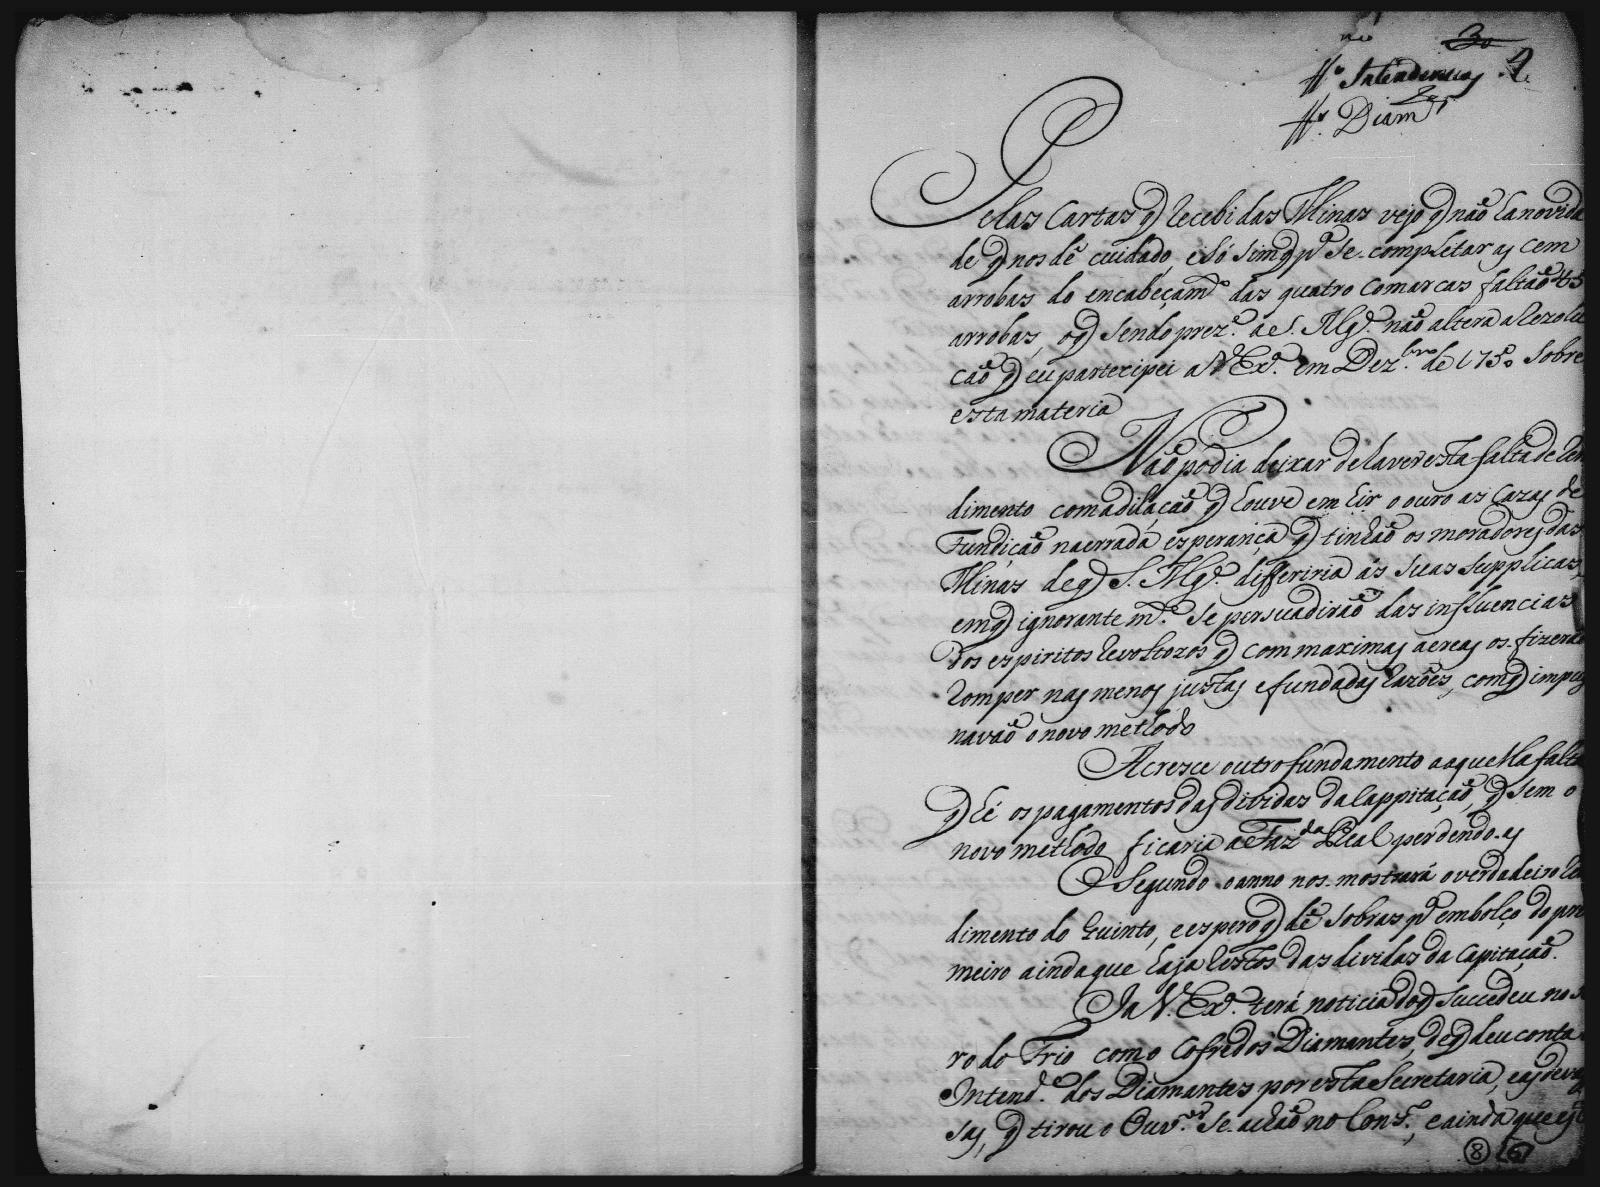 30
4
Intendencias
Diam.es
Pelas Cartas q̃ recebi das Minas vejo q̃ não ha novida
de q̃ nos dê cuidado, e só sim q̃ p.ª se completar as cem
arrobas do encabeçam.to das quatro Comarcas faltão
arrobas, o q̃ sendo prez.e a S. Mg.e não altera a Rezolu
ção q̃ eu partecipei a V Ex.ª em Dez.bro de 1750 sobre
esta materia
Não podia deixar de haver esta falta de Ren
dimento com a dilação q̃ houve em hir o ouro as Cazas de
Fundição na errada esperança q̃ tinhão os moradores das
Minas de q̃ S. Mg.e differiria ás suas supplicas,
em q̃ ignorantem.te se persuadirão das influencias
dos espiritos revoltozos q̃ com maximas aereas os fizerão
romper nas menos justas e fundadas razões, com q̃ impug
navão o novo methodo
Acresce outro fundamento a aquella falta
q̃ hé os pagamentos das dividas da Cappitação, q̃ sem o
novo methodo ficaria a Faz.da Real perdendo-as
O segundo anno nos mostrará o verdadeiro Ren
dimento do Quinto, e espero q̃ dê sobras p.ª embolço do pri
meiro ainda que haja restos das dividas da Capitação.
Ja V. Ex.ª terá noticia do q̃ succedeu no Ser
ro do Frio com o Cofre dos Diamantes, de q̃ deu conta o
Intend.e dos Diamantes por esta Secretaria, e as devas
sas, q̃ tirou o Ouv.or se achão no Cons.º, e ainda que
8